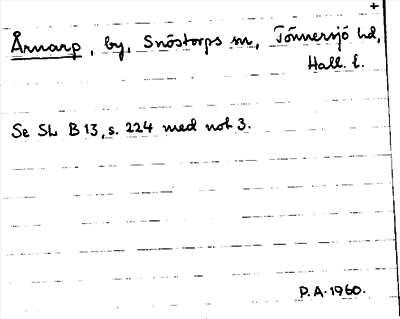 +
Årnarp, by, Snöstorps sn, Tönnersjö hd,
Hall. l.
Se SL B 13, s. 224 med not 3.
P.A. 1960.